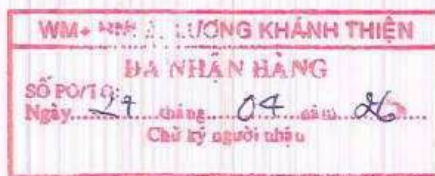 WM+ LƯƠNG KHÁNH THIỆN
ĐÃ NHẬN HÀNG
SỐ PO/TO:
Ngày 27 tháng 04 năm 26
Chữ ký người nhận